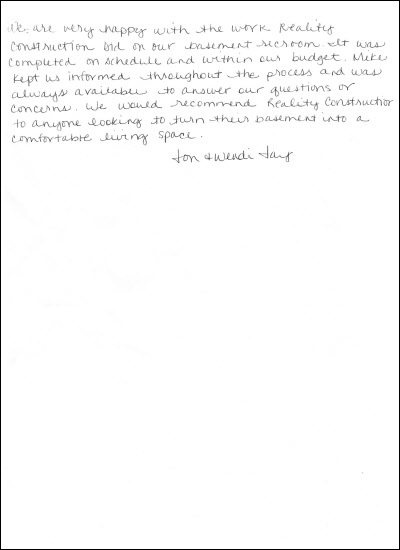 We are very happy with the work Reality
Construction did on our basement recroom. It was
completed on schedule and within our budget. Mike
kept us informed throughout the process and was
always available to answer our questions or
concerns. We would recommend Reality Construction
to anyone looking to turn their basement into a
comfortable living space.
Jon & Wendi